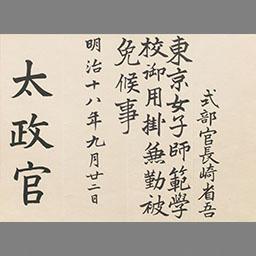 式部官長崎省吾
東京女子師範學
校御用掛兼勤被
免候事
明治十八年九月廿二日
太政官